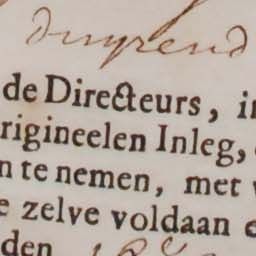 duyzend
de Directeurs, in
rigineelen Inleg,
n te nemen, met
e zelve voldaan e
den